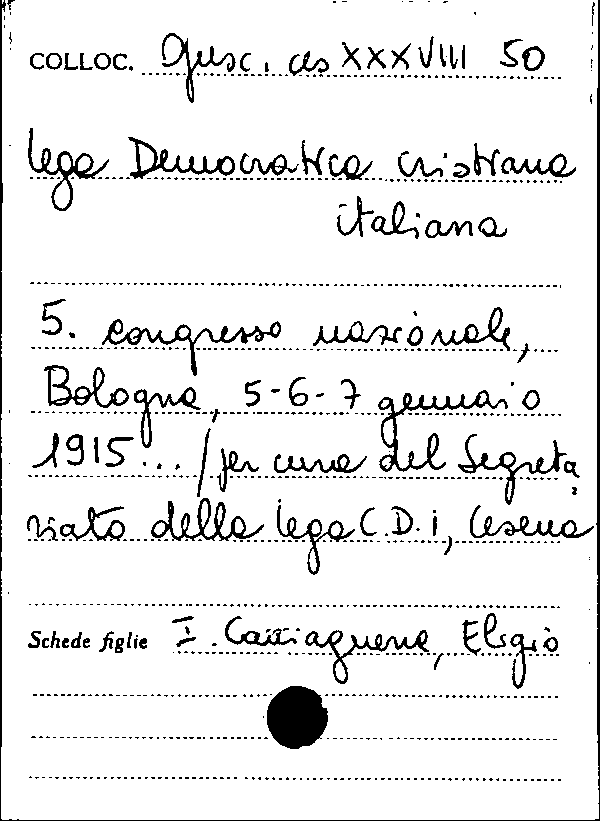 COLLOC. Opusc. ces XXXVIII 50
lega Democratica cristiana
italiana
5. congresso nazionale,
Bologna, 5-6-7 gennaio
1915... / per cura del Segreta
riato della lega C.D.i, Cesena
Schede figlie I. Cacciaguerra, Eligio